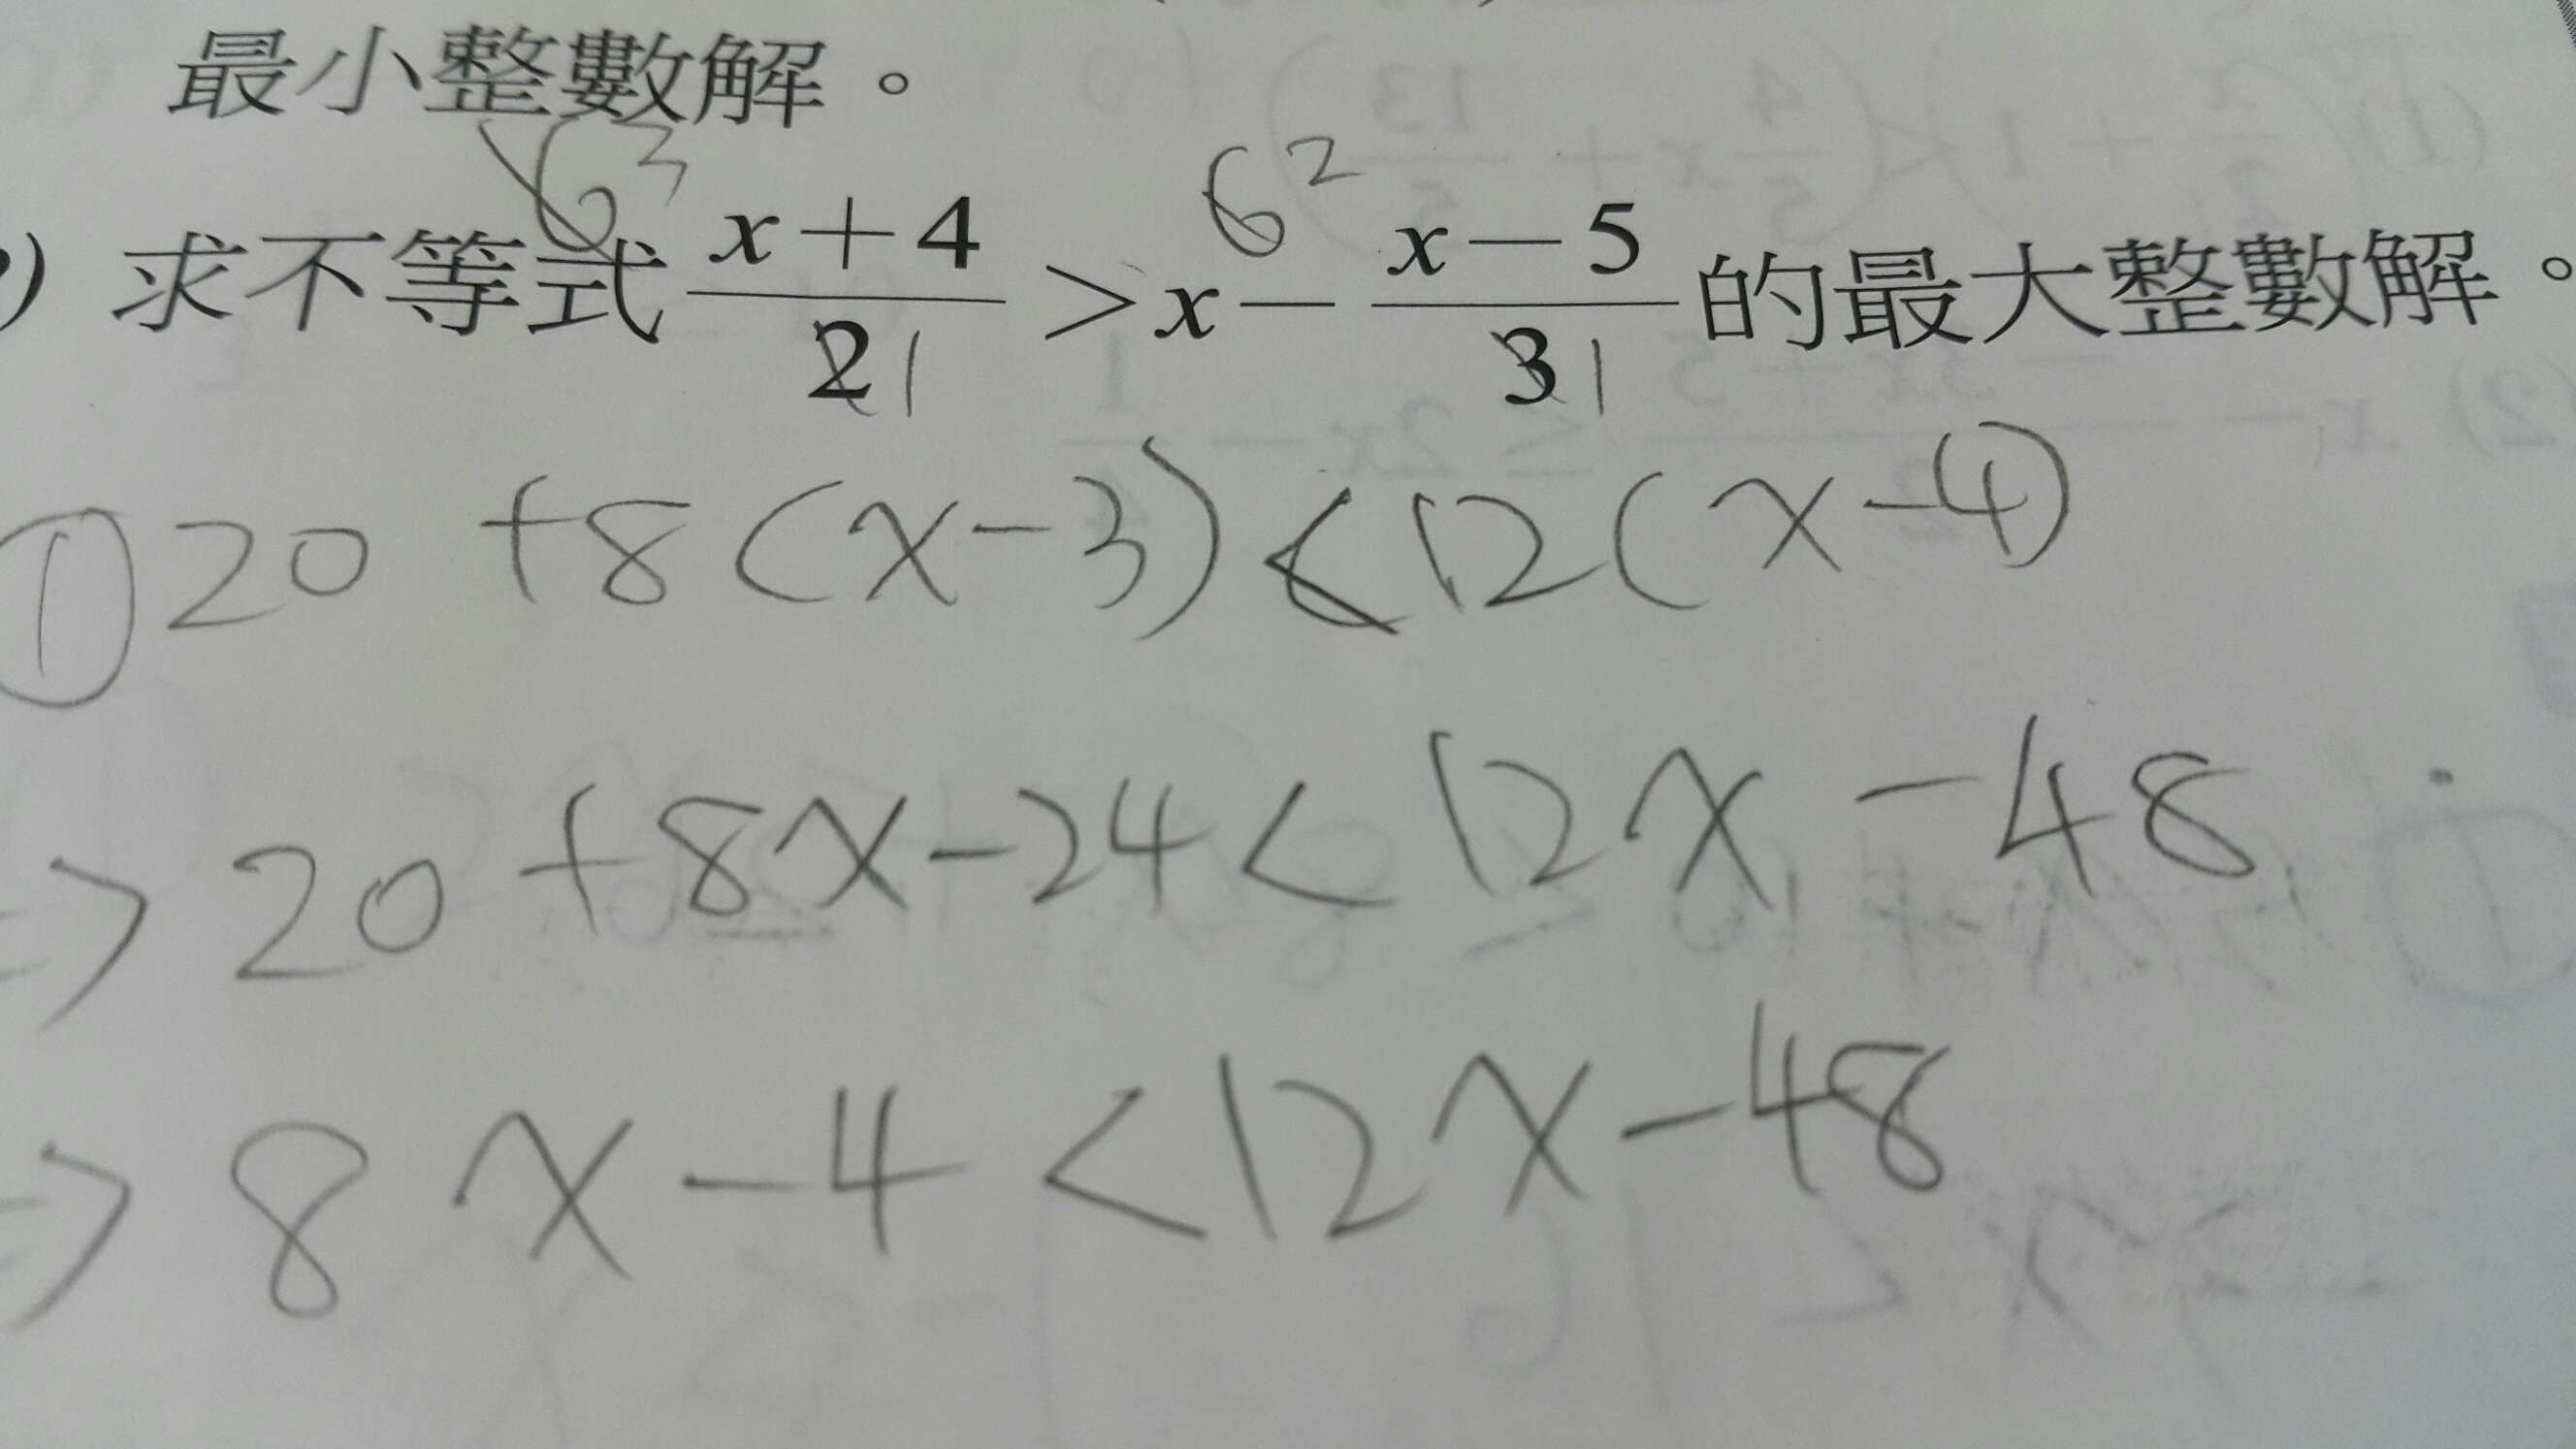 最小整數解。
6 3 6 2
) 求不等式 x+4/2 > x − x−5/3 的最大整數解。
1 1
① 20 +8(x-3)<12(x-4)
=> 20 +8x-24<12x-48
=> 8x-4<12x-48